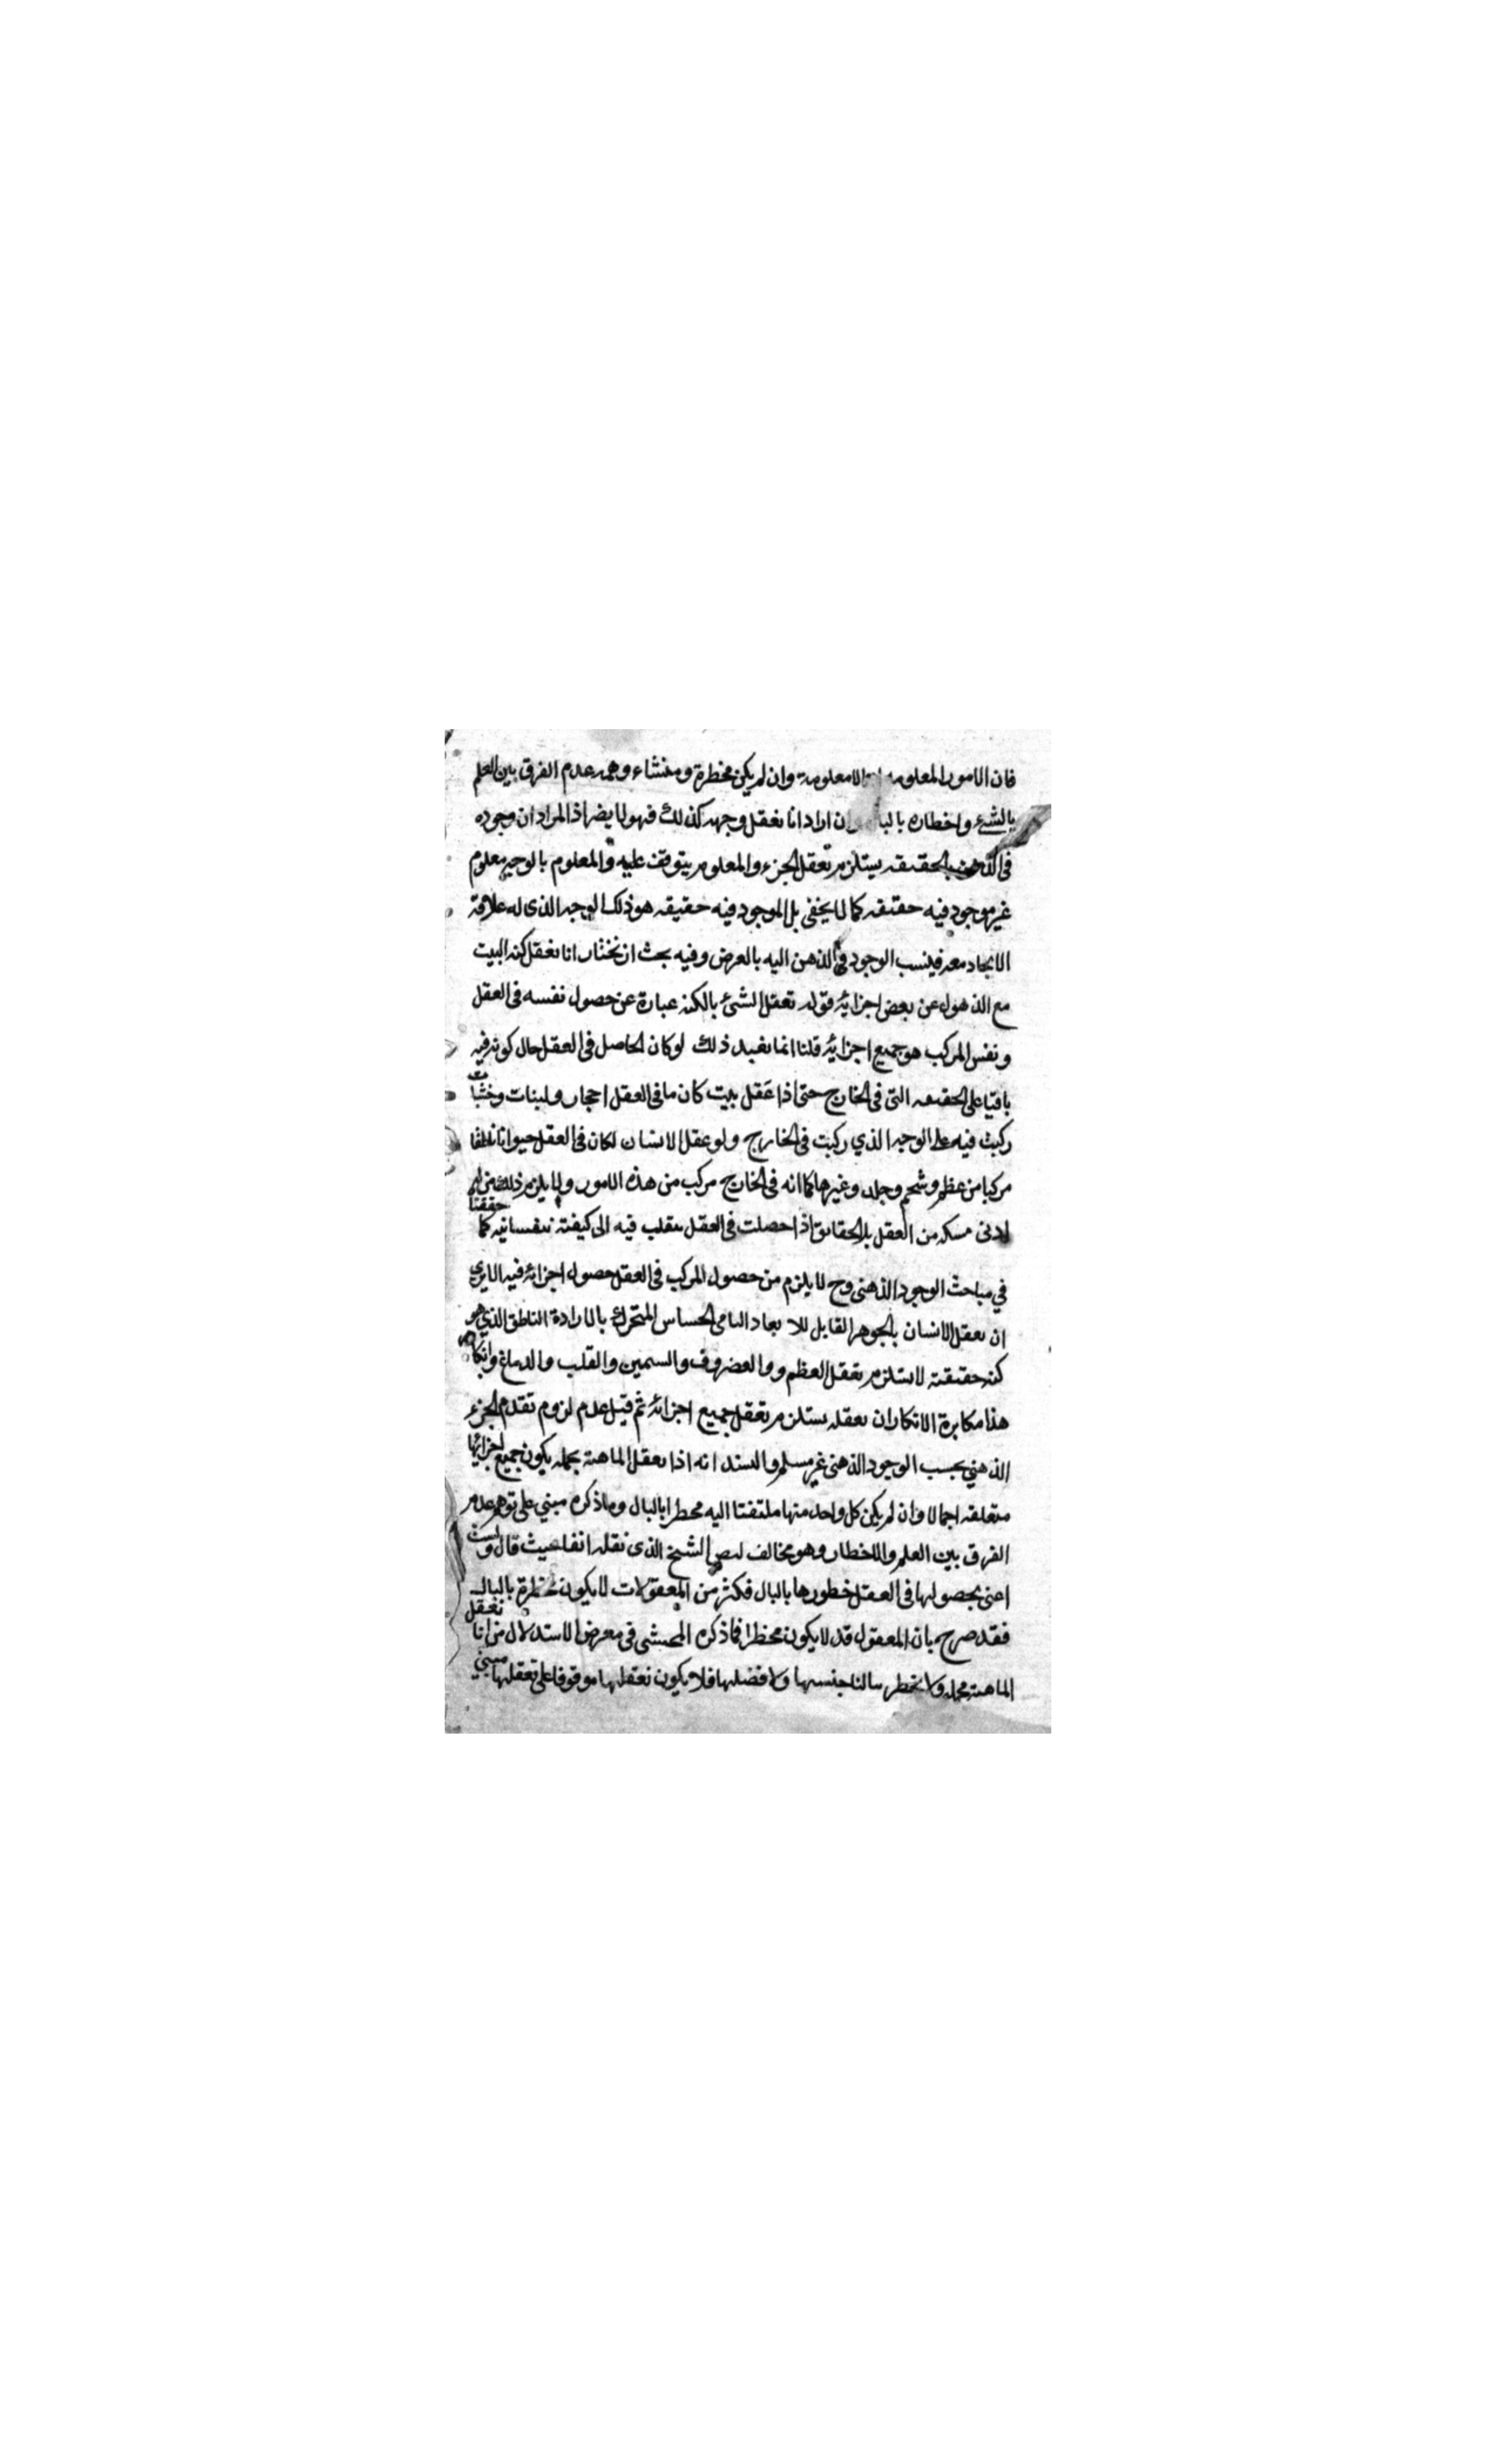 فان الامور المعلومه الامعلومة وان لم يكن مخطرة ومنشاء وهمه عدم الفرق بين العلم
بالشئ واخطاره بالبال وان اراد انا نعقل وجهه كذلك فهو لا يضر اذ المراد ان وجوده
فى الذهن بالحقيقه يستلزم تعقل الجزء والمعلوم يتوقف عليه والمعلوم بالوجه معلوم
غير موجود فيه حقيقه كما لا يخفى بل الموجود فيه حقيقه هو ذلك الوجه الذى له علاقة
الاتحاد معه فينسب الوجود فى الذهن اليه بالعرض وفيه بحث ان نختار انا نعقل كنه البيت
مع الذهول عن بعض اجزائه قوله تعقل الشئ بالكنه عبارة عن حصول نفسه فى العقل
ونفس المركب هو جميع اجزائه قلنا انما يفيد ذلك لو كان الحاصل فى العقل حال كونه فيه
باقيا على الحقيقه التى فى الخارج حتى اذا عقل بيت كان ما فى العقل احجار ولبنات وخشبات
ركبت فيه على الوجه الذي ركبت فى الخارج ولو عقل الانسان لكان فى العقل حيوانا ناطقا
مركبا من عظم وشحم وجلد وغيرها كما انه فى الخارج مركب من هذه الامور ولا يلزم ذلك من له
ادنى مسكه من العقل بل الحقايق اذا حصلت فى العقل ينقلب فيه الى كيفية نفسانيه كما حققنا
في مباحث الوجود الذهنى وح لا يلزم من حصول المركب فى العقل حصول اجزائه فيه الا يرى
ان تعقل الانسان بالجوهر القابل للابعاد النامى الحساس المتحرك بالارادة الناطق الذي هو
كنه حقيقته لا يستلزم تعقل العظم والغضروف والسمين والقلب والدماغ وانكار
هذا مكابرة الا نكار ان تعقله يستلزم تعقل جميع اجزائه ثم قيل عدم لزوم تقدم الجزء
الذهني بحسب الوجود الذهنى غير مسلم والسند انه اذا تعقل الماهية بجمله يكون جميع اجزائها
متعلقه اجمالا وان لم يكن كل واحد منها ملتفتا اليه مخطرا بالبال وما ذكره مبني على توهم عدم
الفرق بين العلم والاخطار وهو مخالف لنص الشيخ الذى نقله انفا حيث قال ولست
اعنى بحصولها فى العقل خطورها بالبال فكثير من المعقولات لا يكون مخطرة بالبال
فقد صرح بان المعقول قد لا يكون مخطرا فما ذكره المحشى فى معرض الاستدلال من انا نعقل
الماهية مجمله ولا يخطر ببالنا جنسها ولا فصلها فلا يكون تعقلها موقوفا على تعقلها مبني